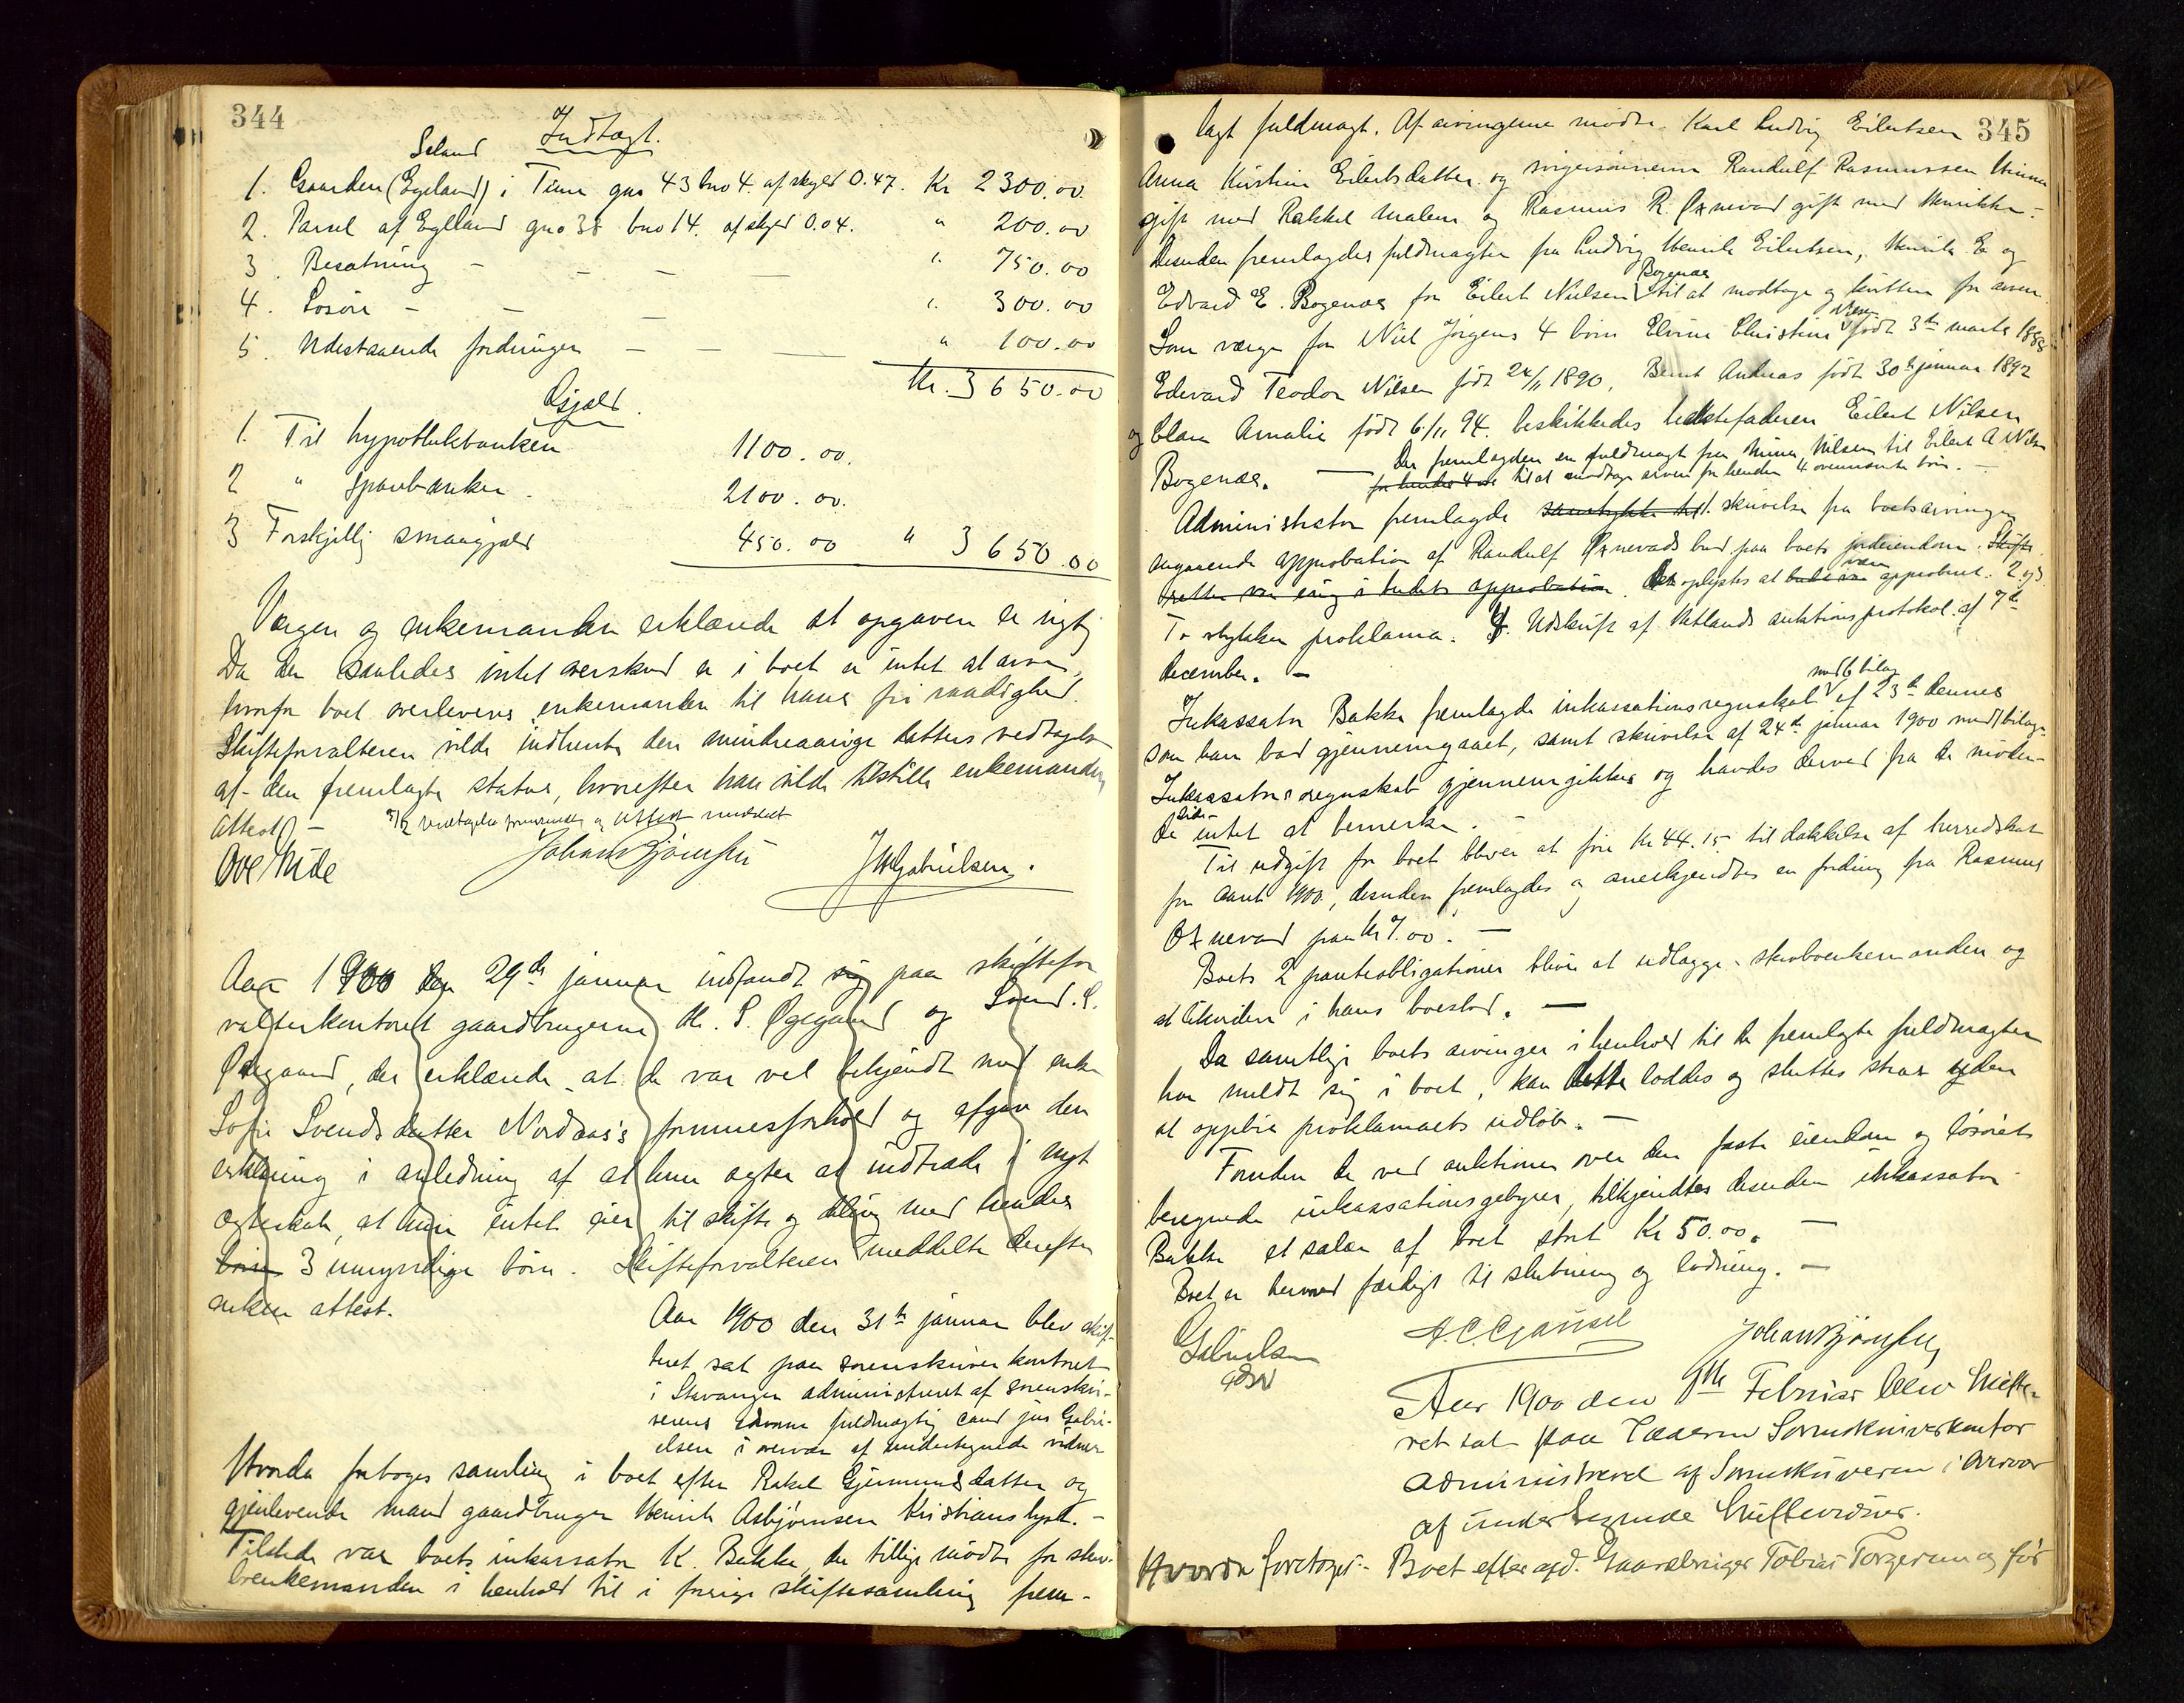 344
Indtægt.
Seland
1. Gaarden (Egeland) i Time gno 43 bno 4. af skyld 0.47. Kr 2300.00.
2. Parsel af Eglland gno 38 bno 14. af skyld 0.04. " 200.00
3. Besætning - - - — " 750.00
4. Løsøre - - — " 300.00
5. Udestaaende fordringer — — — " 100.00
Kr. 3650.00
Gjæld.
1. Til hypothekbanken 1100.00.
2 " sparebanken. 2100.00.
3 Forskjellig smaagjæld 450.00 " 3650.00
Værgen og enkemanden erklærede at opgaven er rigtig
Da der saaledes intet overskud er i boet er intet at arve,
hvorfor boet overleveres enkemanden til hans fri raadighed.
Skifteforvalteren vilde indhente den mindreaarige datters vedtagelse
af den fremlagte status, hvorefter han vilde tilstille enkemanden
attest. — vedtagelse fremsendt og attest meddelt
Ove Nide Johan Bjørnsen J M Gabrielsen.
Aar 1900 den 29de januar indfandt sig paa skiftefor
valterkontoret gaardbrugerne M. S. Øgegaard og Svend. S.
Ødegaard, der erklærede at de var vel bekjendt med enke
Sofie Svendsdatter Nordaas's formuesforhold og afgav den
erklæring i anledning af at hun agter at indtræde i nyt
ægteskab, at hun intet eier til skifte og deling med hendes
børn 3 umyndige børn. Skifteforvalteren meddelte derefter
enken attest.
Aar 1900 den 31te januar blev skif-
teret sat paa sorenskriverkontoret
i Stavanger administreret af sorenskri-
verens edsvorne fuldmægtig cand jur Gabri-
elsen i overvær af undertegnede vidner
Hvorda foretoges samling i boet efter Rakel Gjermundsdatter og
gjenlevende mand gaardbruger Henrik Asbjørnsen Kristianslyst. -
Tilstede var boets inkassator K. Bakke, der tillige mødte for skov-
brenkemanden i henhold til i forrige skiftesamling frem-
345
lagt fuldmagt. Af arvingerne mødte Karl Ludvig Eilertsen
Anna Kirstine Eilertsdatter og svigersønnerne Randulf Rasmussen
gift med Rakkel Malene og Rasmus R. Oznevad gift med Henrikke.
Desuden fremlagdes fuldmagter fra Ludvig Henrik Eilertsen, Henrik E og
Bogenæs
Edvard E. Bogenæs for Eilert Nielsen til at modtage og kvittere for arven
Nilsen
Som værge for Niel Jørgens 4 børn Elvine Christine født 3de marts 1888
Edevard Teodor Nilsen født 24/11 1890, Bernt Andreas født 30te januar 1892
og Clara Amalie født 6/11 94. beskikkedes bedstefaderen Eilert Nilsen
Bogenæs. — Der fremlagdes en fuldmagt fra Mina Nilsen til Eilert A Nilsen
for hendes 4 til at modtage arven for hendes 4 ovennævnte børn. —
Administrator fremlagde samtykke til skrivelse fra boets arvinger
angaaende approbation af Randulf Oznevads bud paa boets jordeiendom. Skifte
retten var enig i budets approbation. Det oplystes at budet var approberet. 2 og 3
To stykker proklama. 4. Udskrift af Hetlands auktionsprotokol af 7de
december. —
med 6 bilag
Inkassator Bakke fremlagde inkassationsregnskab af 23de dennes
som han bad gjennemgaaet, samt skrivelse af 24de januar 1900 med 1 bilag.
Inkassators regnskab gjennemgikkes og havdes derved fra de møden-
des side intet at bemerke. —
Til udgift for boet bliver at føre Kr 44.15 til dækkelse af herredskat
for aaret 1900, desuden fremlagdes og anerkjendtes en fordring fra Rasmus
Oznevad paa Kr 7.00. —
Boets 2 panteobligationer bliver at udlægge skovbrenkemanden og
at likvidere i hans boeslod. —
Da samtlige boets arvinger i henhold til de fremlagte fuldmagter
har meldt sig i boet, kan dette loddes og sluttes strax uden
at oppebie proklamaets udløb. —
Foruden de ved auktionen over den faste eiendom og løsøret
beregnede inkassationsgebyrer, tilkjendtes desuden inkassator
Bakke et salær af boet stort Kr 50.00. —
Boet er hermed færdigt til slutning og lodning. —
Gabrielsen A. C. Gjansel Johan Bjørnsen
Aar 1900 den 9de Februar blev Skifte-
ret sat paa Jæderens Sorenskriverkontor
administreret af Sorenskriveren i overvær
af undertegnede Skiftevidner.
Hvorda foretoges Boet efter afd. Gaardbruger Tobias Torgersen og før